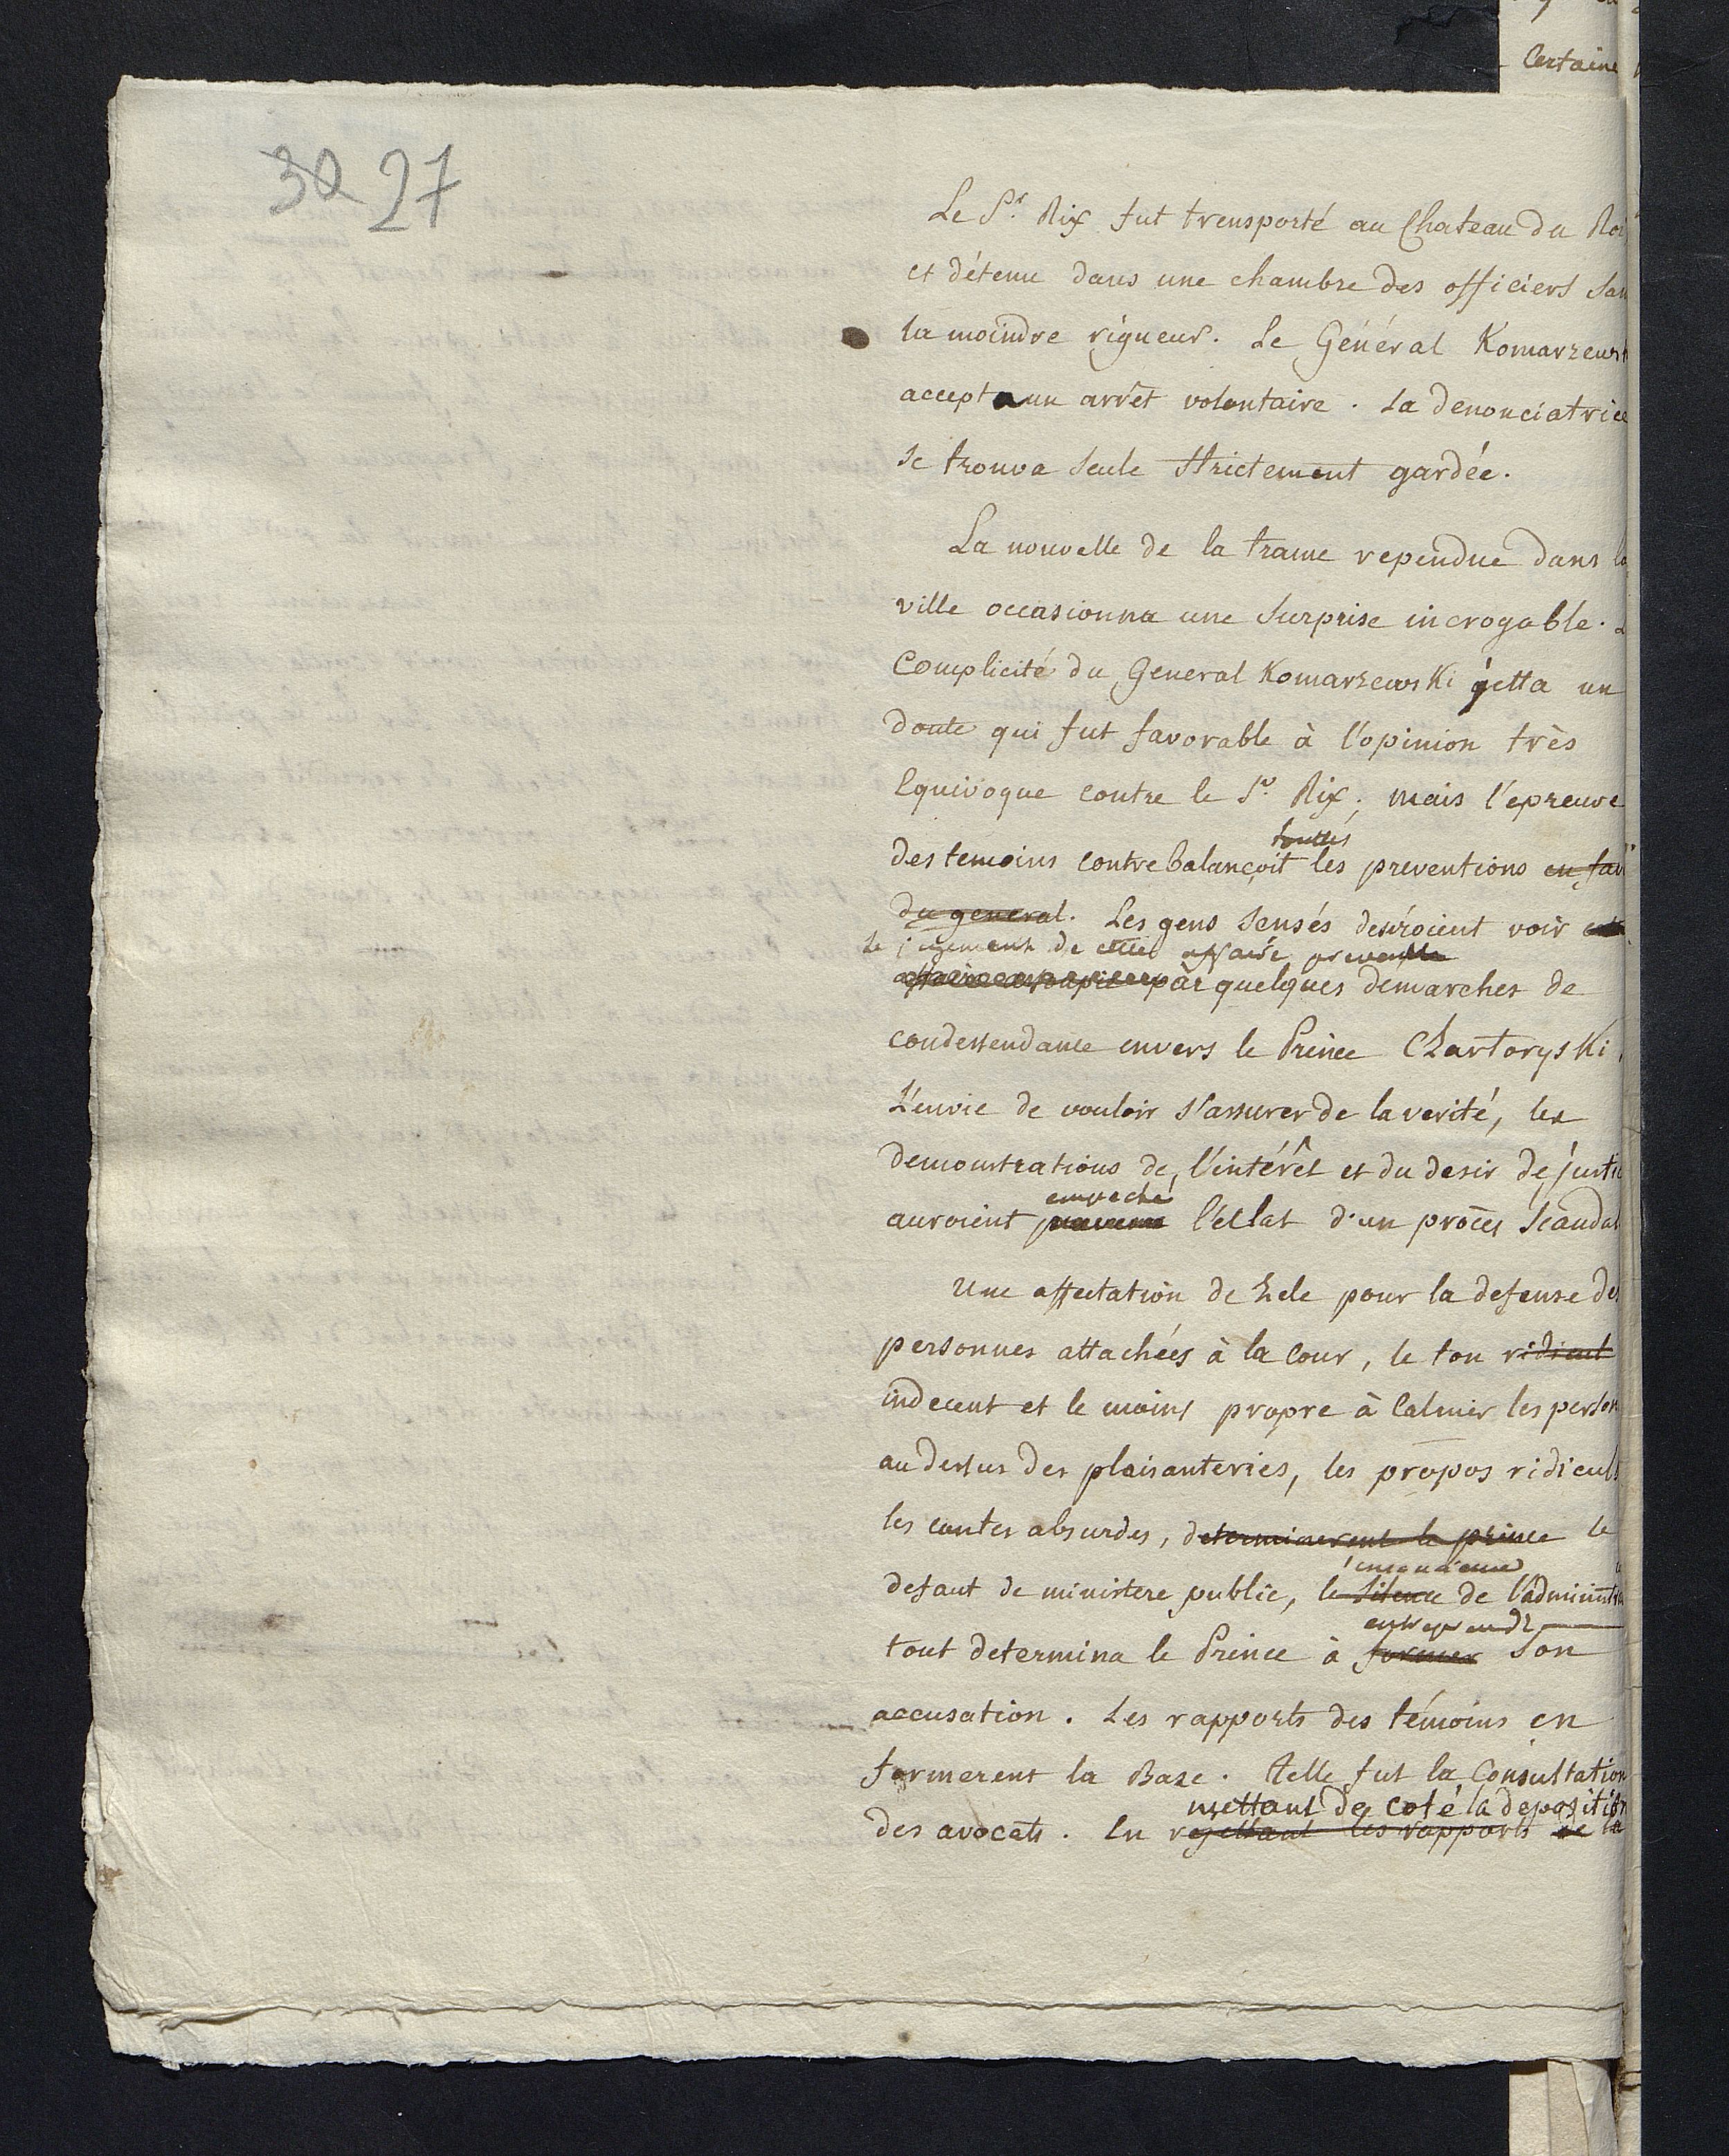 Certaine
30 27
Le Sr. Rix fut trensporté au Chateau du Roi
et détenu dans une chambre des officiers san
la moindre rigueur. Le Général Komarzewsk
accepta un arrêt volontaire. La denonciatrice
se trouva seule strictement gardée.
La nouvelle de la trame rependue dans la
ville occasionna une surprise incroyable.
Complicité du General Komarzewski jetta un
doute qui fut favorable à l'opinion très
Equivoque contre le Sr. Rix; mais l'epreuve
touttes
des temoins contrebalançoit les preventions en fav
du general. Les gens sensés desiroient voir
le jugement de cette affaire prevenüe
affaire assoupie par quelques démarches de
condessendance envers le Prince Chartoryski,
L'envie de vouloir s'assurer de la verité, les
demonstrations de l'intérêt et du desir de justi
empeché
auroient l'eclat d'un procès scandal
Une affectation de Zele pour la defense des
personnes attachées à la Cour, le ton ridicul
indecent et le moins propre à Calmer les person
au dessus des plaisanteries, les propos ridicul
les contes absurdes, determinerent le prince le
defaut de ministere public, le silence de l'administra
entreprendr
tout determina le Prince à former son
accusation. Les rapports des témoins en
formerent la Base. Telle fut la Consultation
mettant de coté la deposition
des avocats. En rejettant les rapports de la